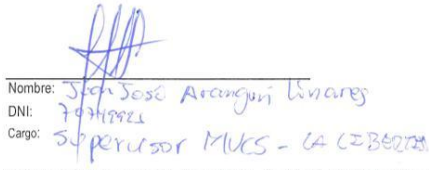 Nombre: Juan José Aranguri Linares
DNI:
Cargo: Supervisor MUCS - LA LIBERTAD